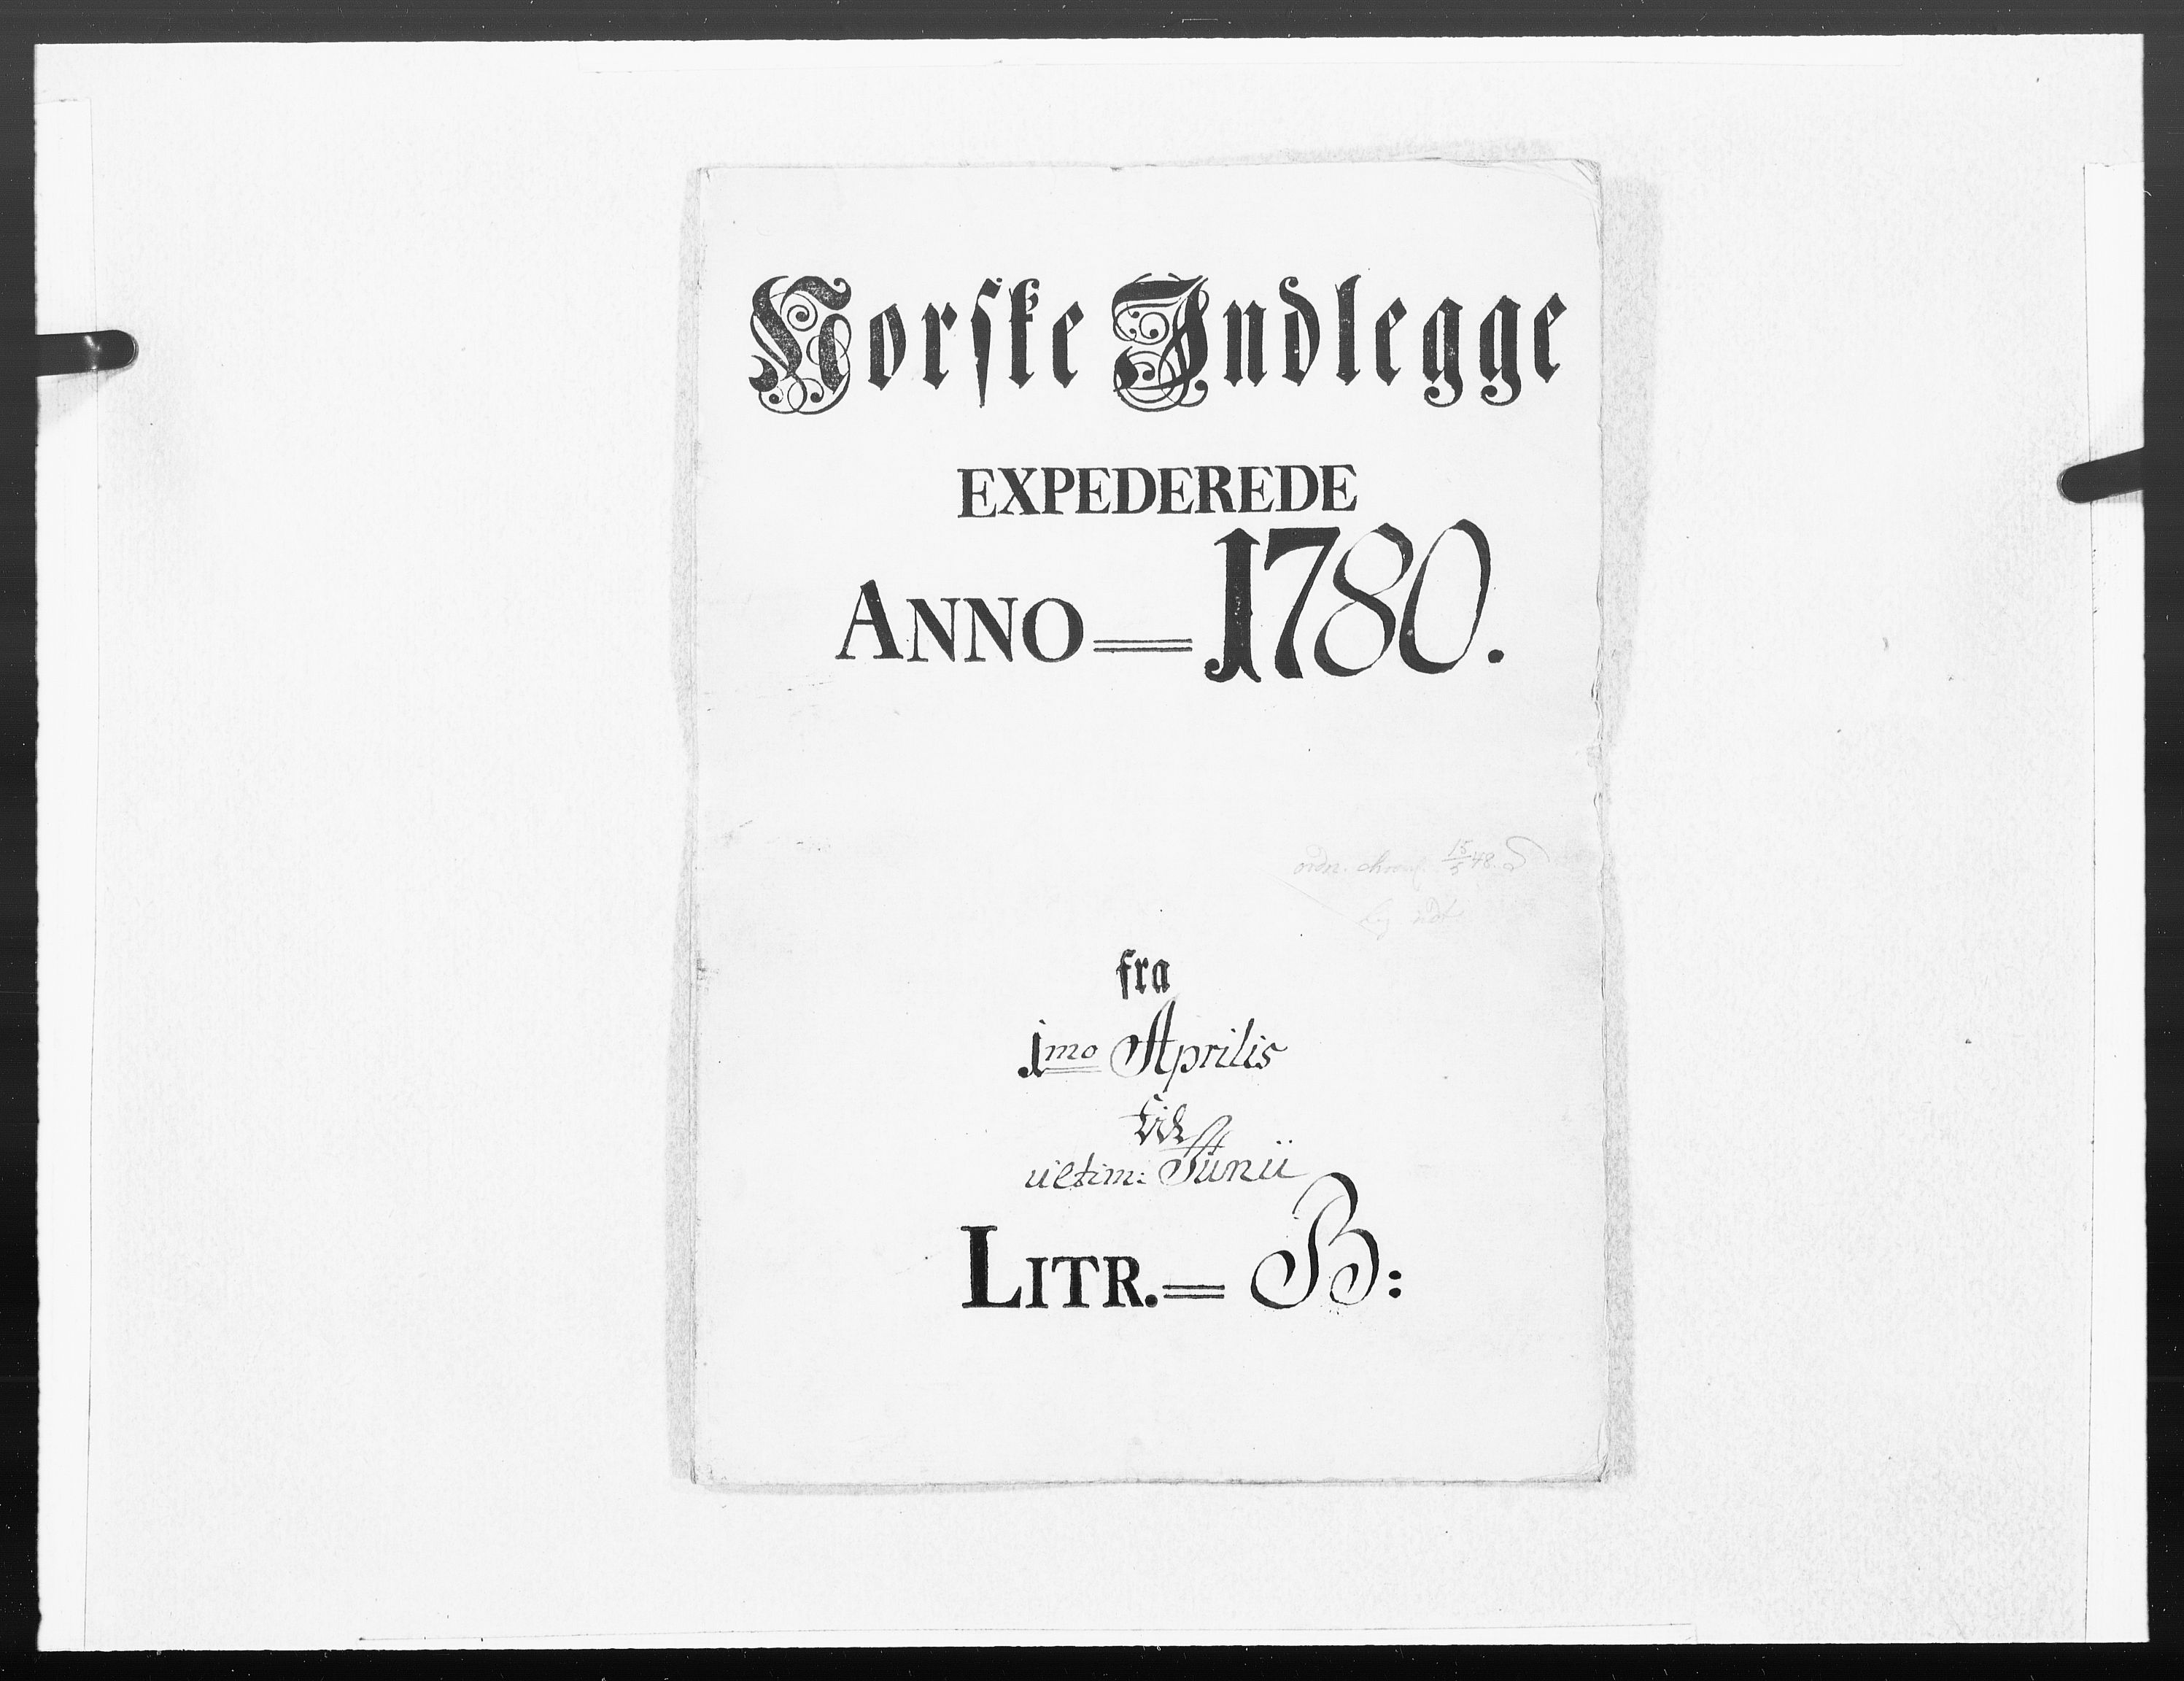 Norske Indlegge
EXPEDEREDE
ANNO = 1780.
ordn. 15/5 48.
fra
1mo Aprilis
til
ultim: Junii
LITR. = B: